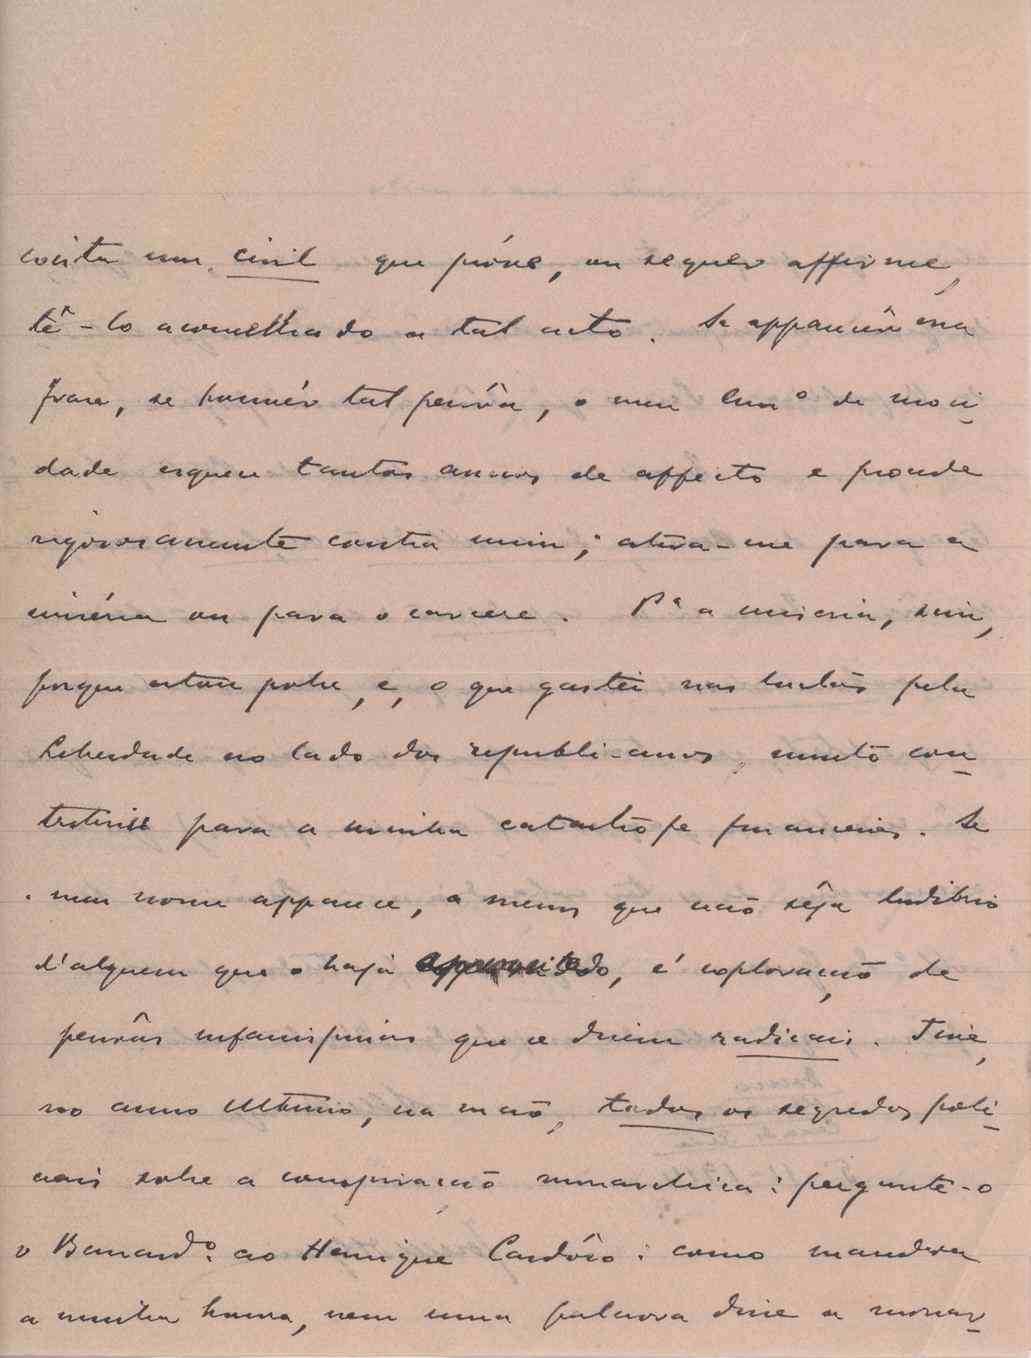 um civil que próve, ou sequer affirme,
tê-lo aconselhado a tal acto. Se apparecêr essa
frase, se houvér tal pessôa, o meu Comº de moci-
dade esquece tantos annos de affecto e procede
rigorosamente contra mim; atira-me para a
miséria ou para o carcere. Pª a miseria, sim,
porque estou pobre, e, o que gastei nas luctas pela
Liberdade ao lado dos republicanos, muito con-
tribuiu para a minha catastrofe financeira. Se
o meu nome apparece, a menos que não sêja ludibrio
d'alguem que o haja aproveitado, é exploração de
pessôas infamissimas que se dizem radicais. Tive,
no anno ultimo, na mão, todos os segredos poli-
ciais sobre a conspiração monarchica: pergunte-o
o Bernardº ao Henrique Cardôso: como mandava
a minha honra, nem uma palavra disse a monar-